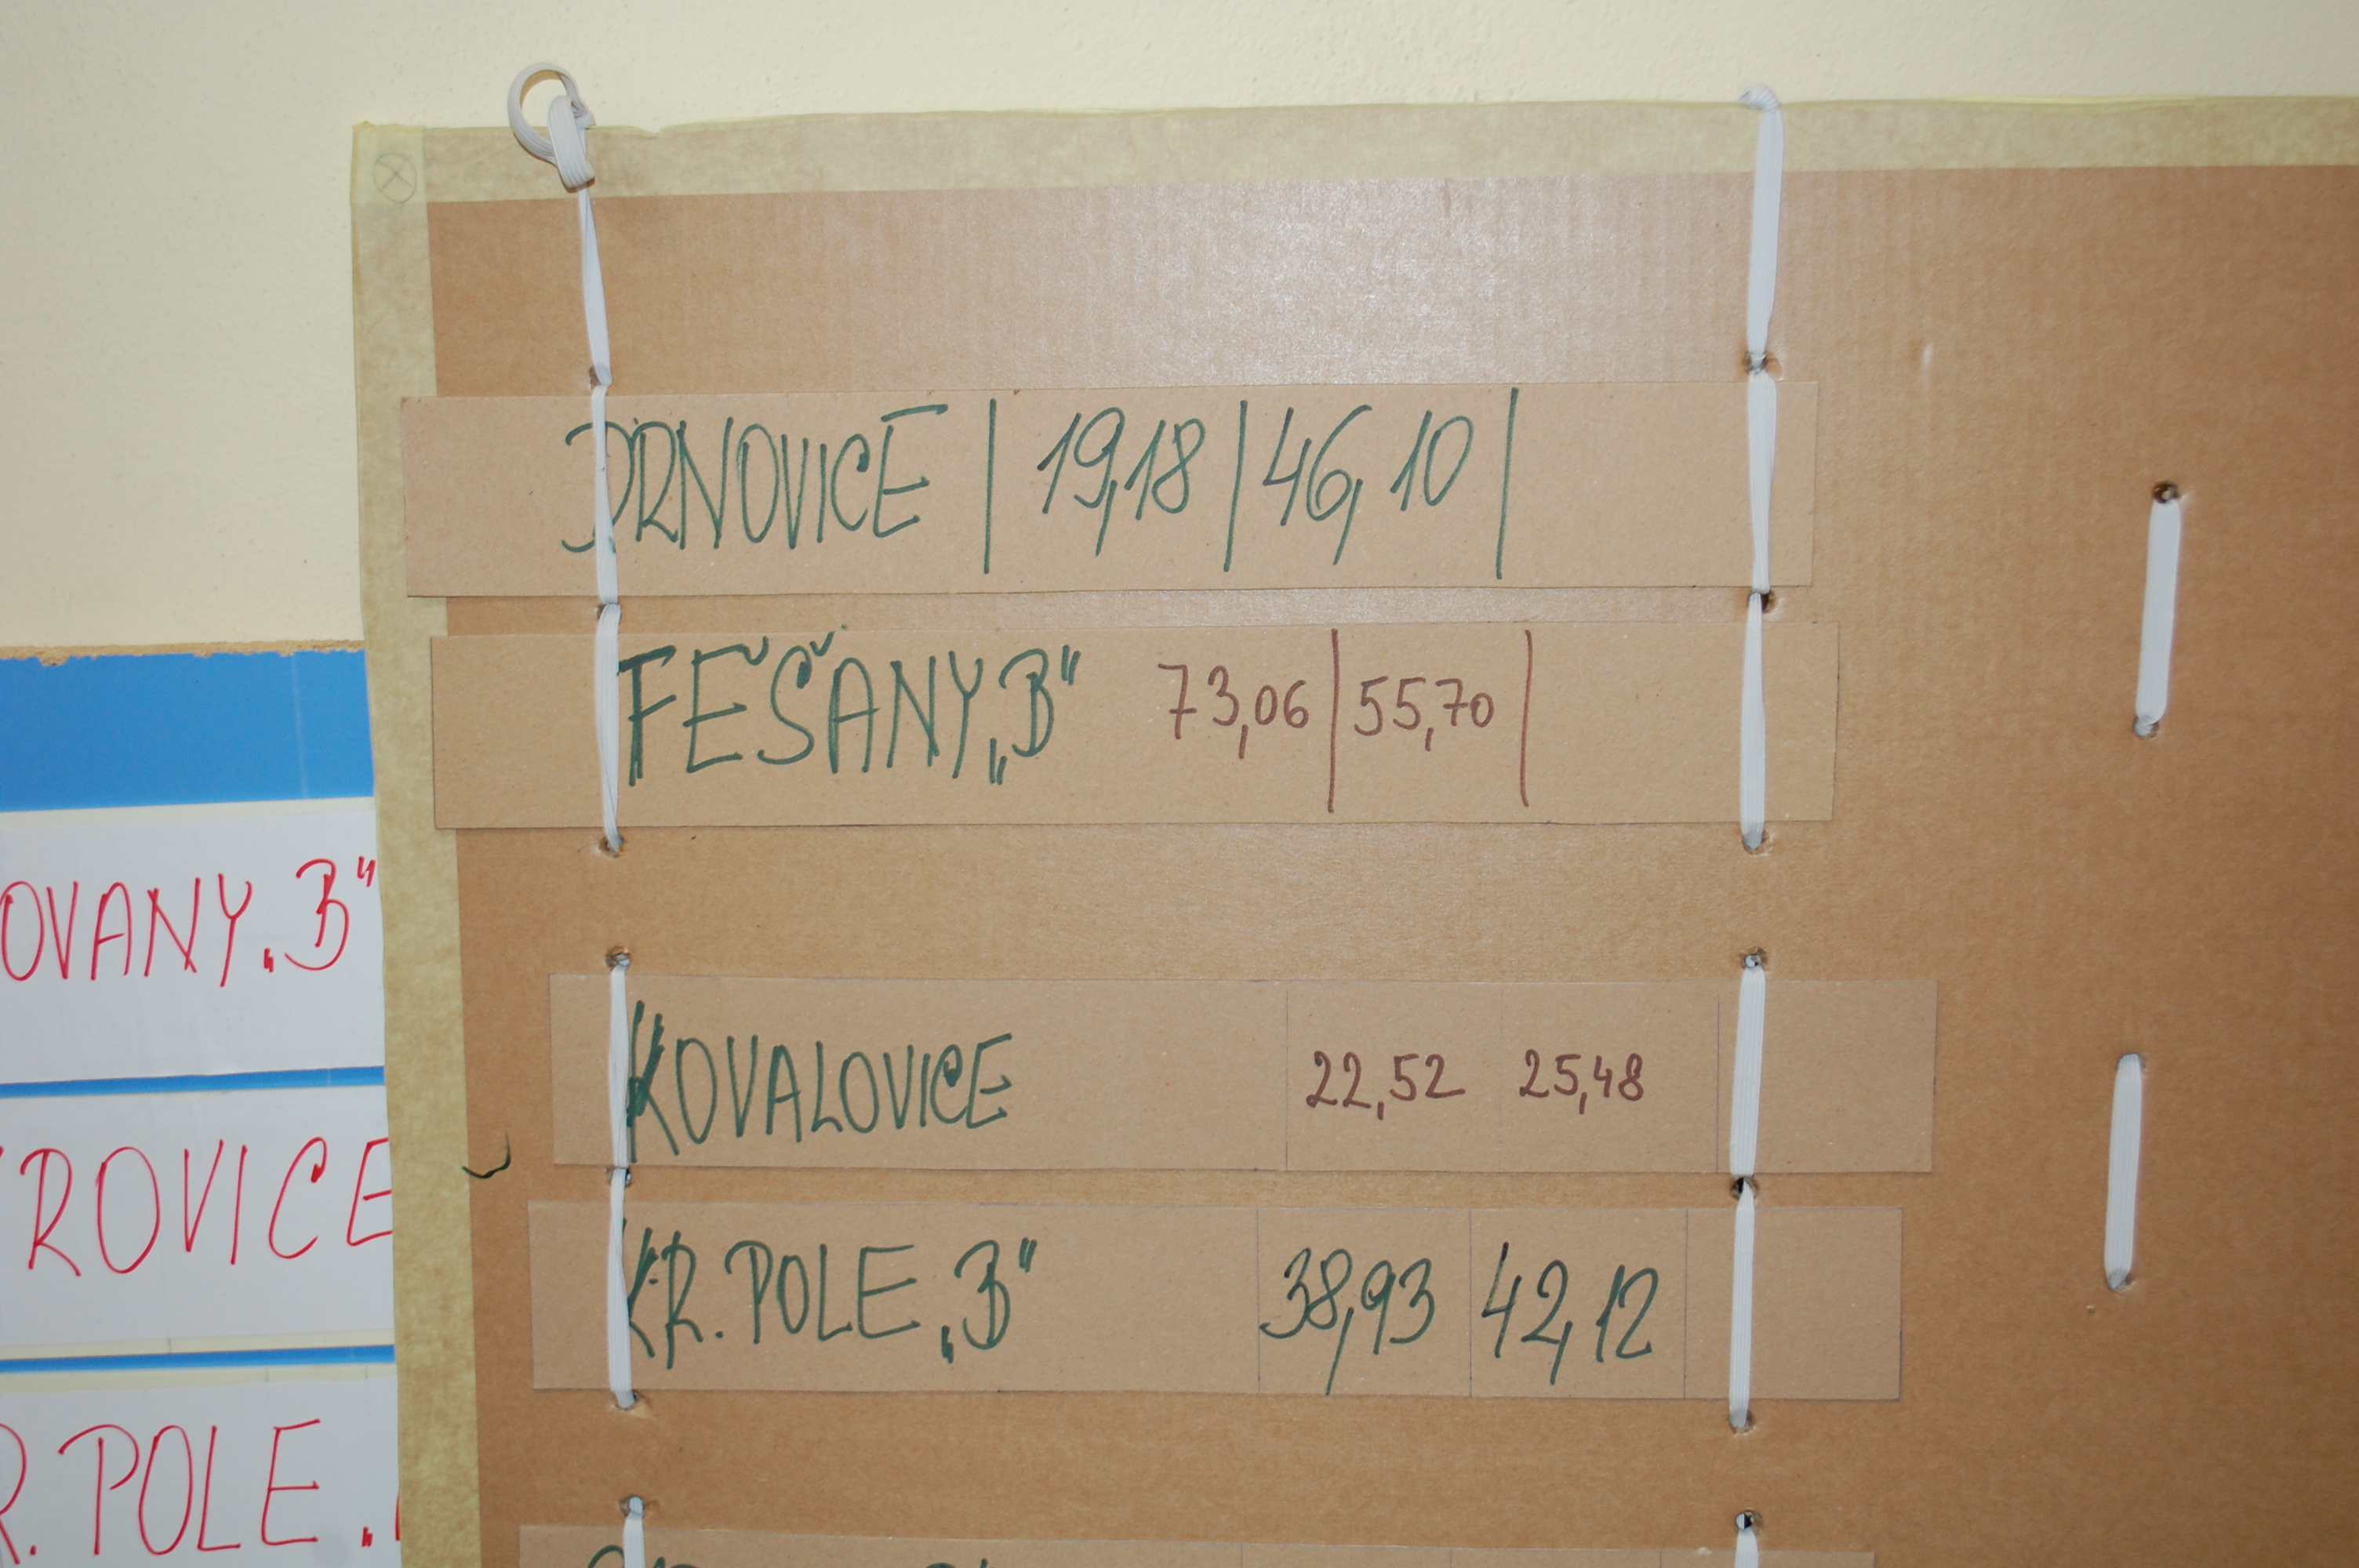 DRNOVICE | 19,18 | 46,10 |
FĚŠANY „B“ 73,06 | 55,70 |
KOVALOVICE 22,52 25,48
KR. POLE „B“ 38,93 42,12
OVANY „B“
ROVICE
R. POLE „